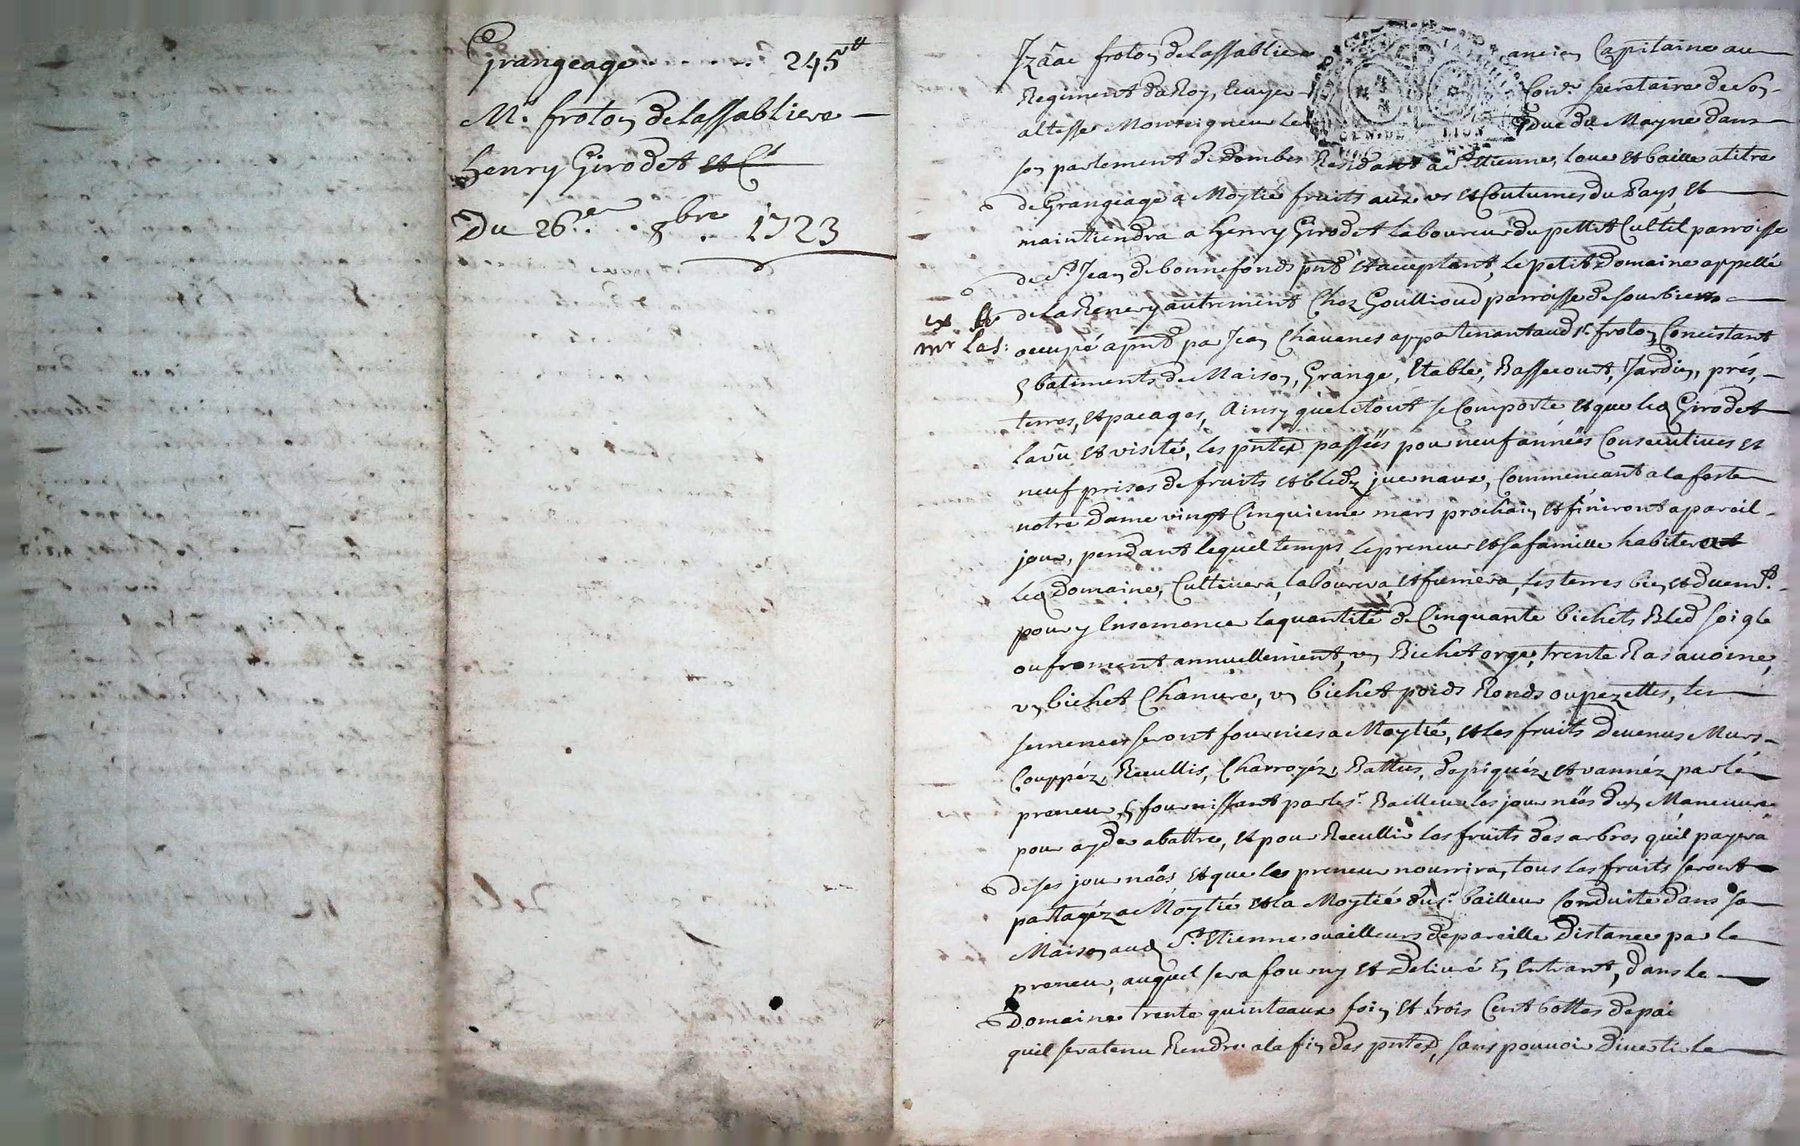 Grangeage ........ 245lt
Mr. froton de lassabliere
henry Girodet et Cs
Du 26e .. 8bre .. 1723
Izâac froton de lassabliere ancien Capitaine au
Regiment du Roy, Ecuyer Conr. secretaire de son
altesse Monseigneur le Duc du Mayne dans
son parlement de dombes Residant a St. Etienne, loue et baille a titre
de Grangeage a Moytié fruits aux us et Coutumes du Pays, et
maintiendra a henry Girodet laboureur du petit Cultil parroisse
de St. Jean de bonnefonds pnt et acceptant, le petit domaine appellé
de la Renery autrement Chez Goullioud parroisse de sourbiers
mr las:
occupé apnt par Jean Chavanes appartenant aud sr. froton Concistant
en batiments de Maison, Grange, Etable, Bassecourt, Jardin, prés,
terres, et pacages, Ainsy que le tout se Comporte et que led Girodet
la vû et visité, les pntes passéës pour neuf années Consecutives et
neuf prises de fruits et bledz jvernaux, Commencant a la feste
notre Dame vingt Cinquieme mars prochain et finiront a pareil
jour, pendant lequel temps, le preneur et sa famille habitera
led domaine, Cultivera, labourera, et fumera, les terres bien et duemt.
pour y Ensemencer la quantité de Cinquante bichets Bled soigle
ou froment annuellement, un Bichet orge, trente Ras avoine,
un bichet Chanvre, un bichet poids Ronds ou pezettes, les
semences seront fournies a Moytié, et les fruits devenus Murs
Couppéz, Recullis, Charroyéz, Battus, depiquéz, et vannéz par lé
preneur, en fournissant par le sr. Bailleur les journéës dun Manœuvre
pour ayder a battre, et pour Recullir les fruits des arbres qu'il payera
de ses journéës, et que le preneur nourrira, tous les fruits seront
partagéz a Moytié et la Moytié du sr. bailleur Conduite dans sa
Maison aud St. Etienne ou ailleurs de pareille Distance par le
preneur, auquel sera fourny et Delivré en Entrant, dans le
Domaine trente quinteaux foin et trois Cent bottes de pai
quil sera tenu Rendre a la fin des pntes, sans pouvoir Divertir le